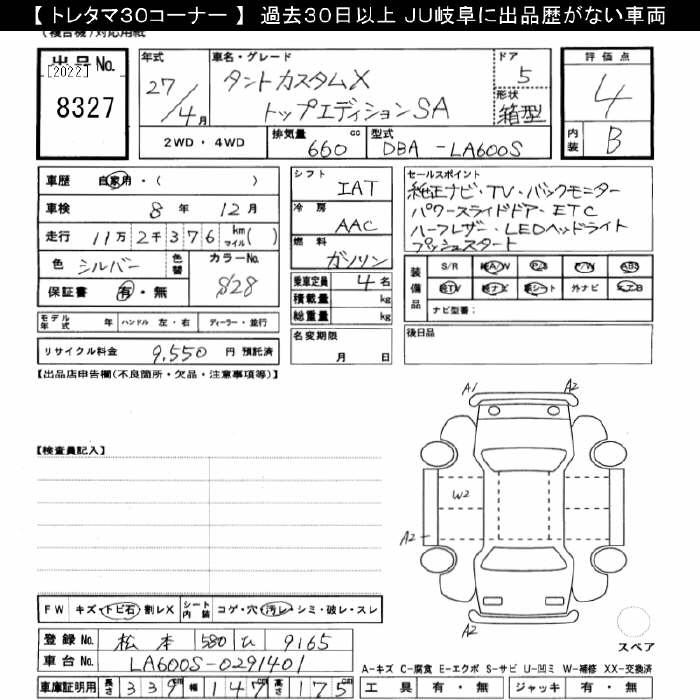 【 トレタマ30コーナー 】 過去30日以上 JU岐阜に出品歴がない車両
(複合機)対応用紙
出品No.
[2022]
8327
年式 27/4月
車名・グレード タントカスタムX
トップエディションSA
ドア 5
形状 箱型
評価点 4
内装 B
2WD・4WD
排気量 660 cc
型式 DBA-LA600S
車歴 自家用・( )
車検 8年 12月
走行 11万2千376 km マイル( )
色 シルバー
色替
カラーNo. S28
保証書 有・無
シフト IAT
冷房 AAC
燃料 ガソリン
乗車定員 4名
積載量 kg
総重量 kg
セールスポイント
純正ナビ・TV・バックモニター
パワースライドドア・ETC
ハーフレザー・LEDヘッドライト
プッシュスタート
装備品
S/R 純A/W P/S P/W ABS
純TV 純ナビ 革シート 外ナビ エアB
ナビ型番:
モデル年式 年 ハンドル 左・右 ディーラー・並行
リサイクル料金 9,550 円 預託済
名変期限 月 日
後日品
【出品店申告欄(不良箇所・欠品・注意事項等)】
【検査員記入】
A1
A2
W2
A2
A2
スペア
FW キズ・トビ石・割レX シート内装 コゲ・穴・汚レ・シミ・破レ・スレ
登録No. 松本 580 ひ 9165
車台No. LA600S-0291401
A-キズ C-腐食 E-エクボ S-サビ U-凹ミ W-補修 XX-交換済
車庫証明用 長さ 339cm 幅 147cm 高さ 175cm
工具 有・無 ジャッキ 有・無